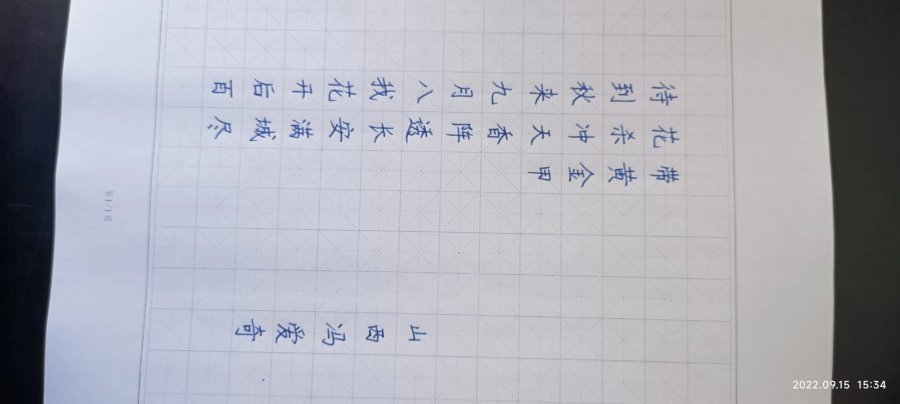 待到秋来九月八我花开后百
花杀冲天香阵透长安满城尽
带黄金甲
山西冯爱奇
第1/1页
2022.09.15 15:34